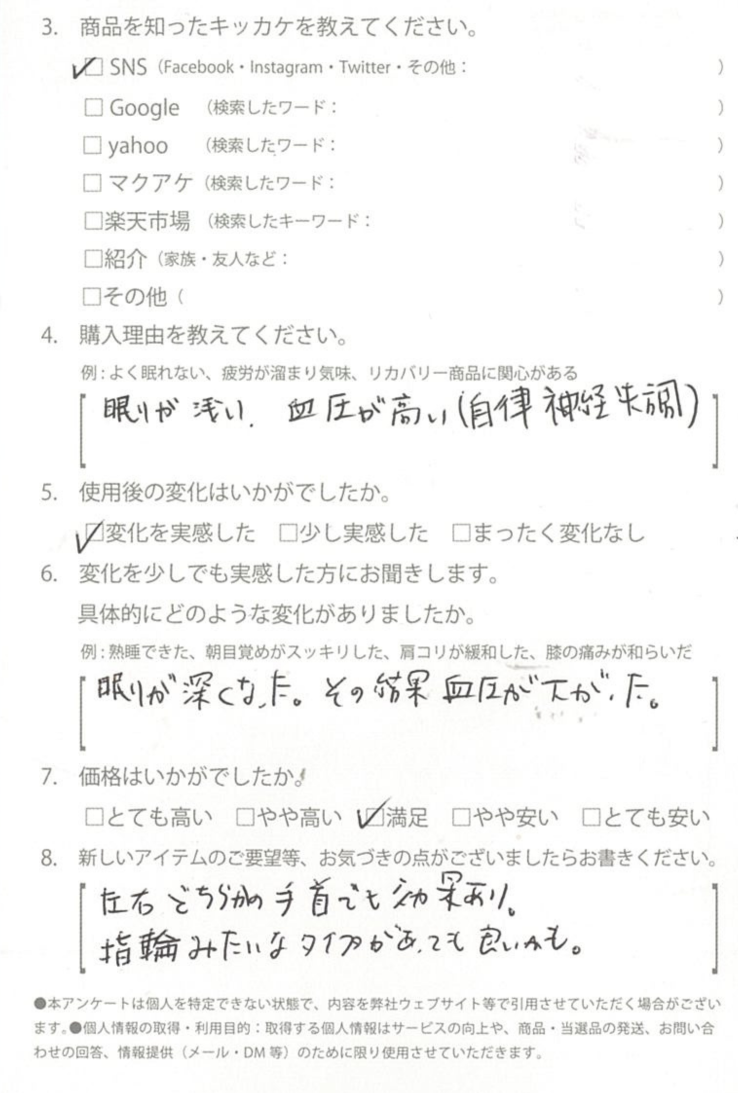 3. 商品を知ったキッカケを教えてください。
☑ SNS（Facebook・Instagram・Twitter・その他： ）
□ Google （検索したワード： ）
□ yahoo （検索したワード： ）
□ マクアケ（検索したワード： ）
□楽天市場（検索したキーワード： ）
□紹介（家族・友人など： ）
□その他（ ）
4. 購入理由を教えてください。
例：よく眠れない、疲労が溜まり気味、リカバリー商品に関心がある
眠りが浅い、血圧が高い（自律神経失調）
5. 使用後の変化はいかがでしたか。
☑変化を実感した □少し実感した □まったく変化なし
6. 変化を少しでも実感した方にお聞きします。
具体的にどのような変化がありましたか。
例：熟睡できた、朝目覚めがスッキリした、肩コリが緩和した、膝の痛みが和らいだ
眠りが深くなった。その結果血圧が下がった。
7. 価格はいかがでしたか。
□とても高い □やや高い ☑満足 □やや安い □とても安い
8. 新しいアイテムのご要望等、お気づきの点がございましたらお書きください。
左右どちらかの手首でも効果あり。
指輪みたいなタイプがあっても良いかも。
●本アンケートは個人を特定できない状態で、内容を弊社ウェブサイト等で引用させていただく場合がござい
ます。●個人情報の取得・利用目的：取得する個人情報はサービスの向上や、商品・当選品の発送、お問い合
わせの回答、情報提供（メール・DM 等）のために限り使用させていただきます。